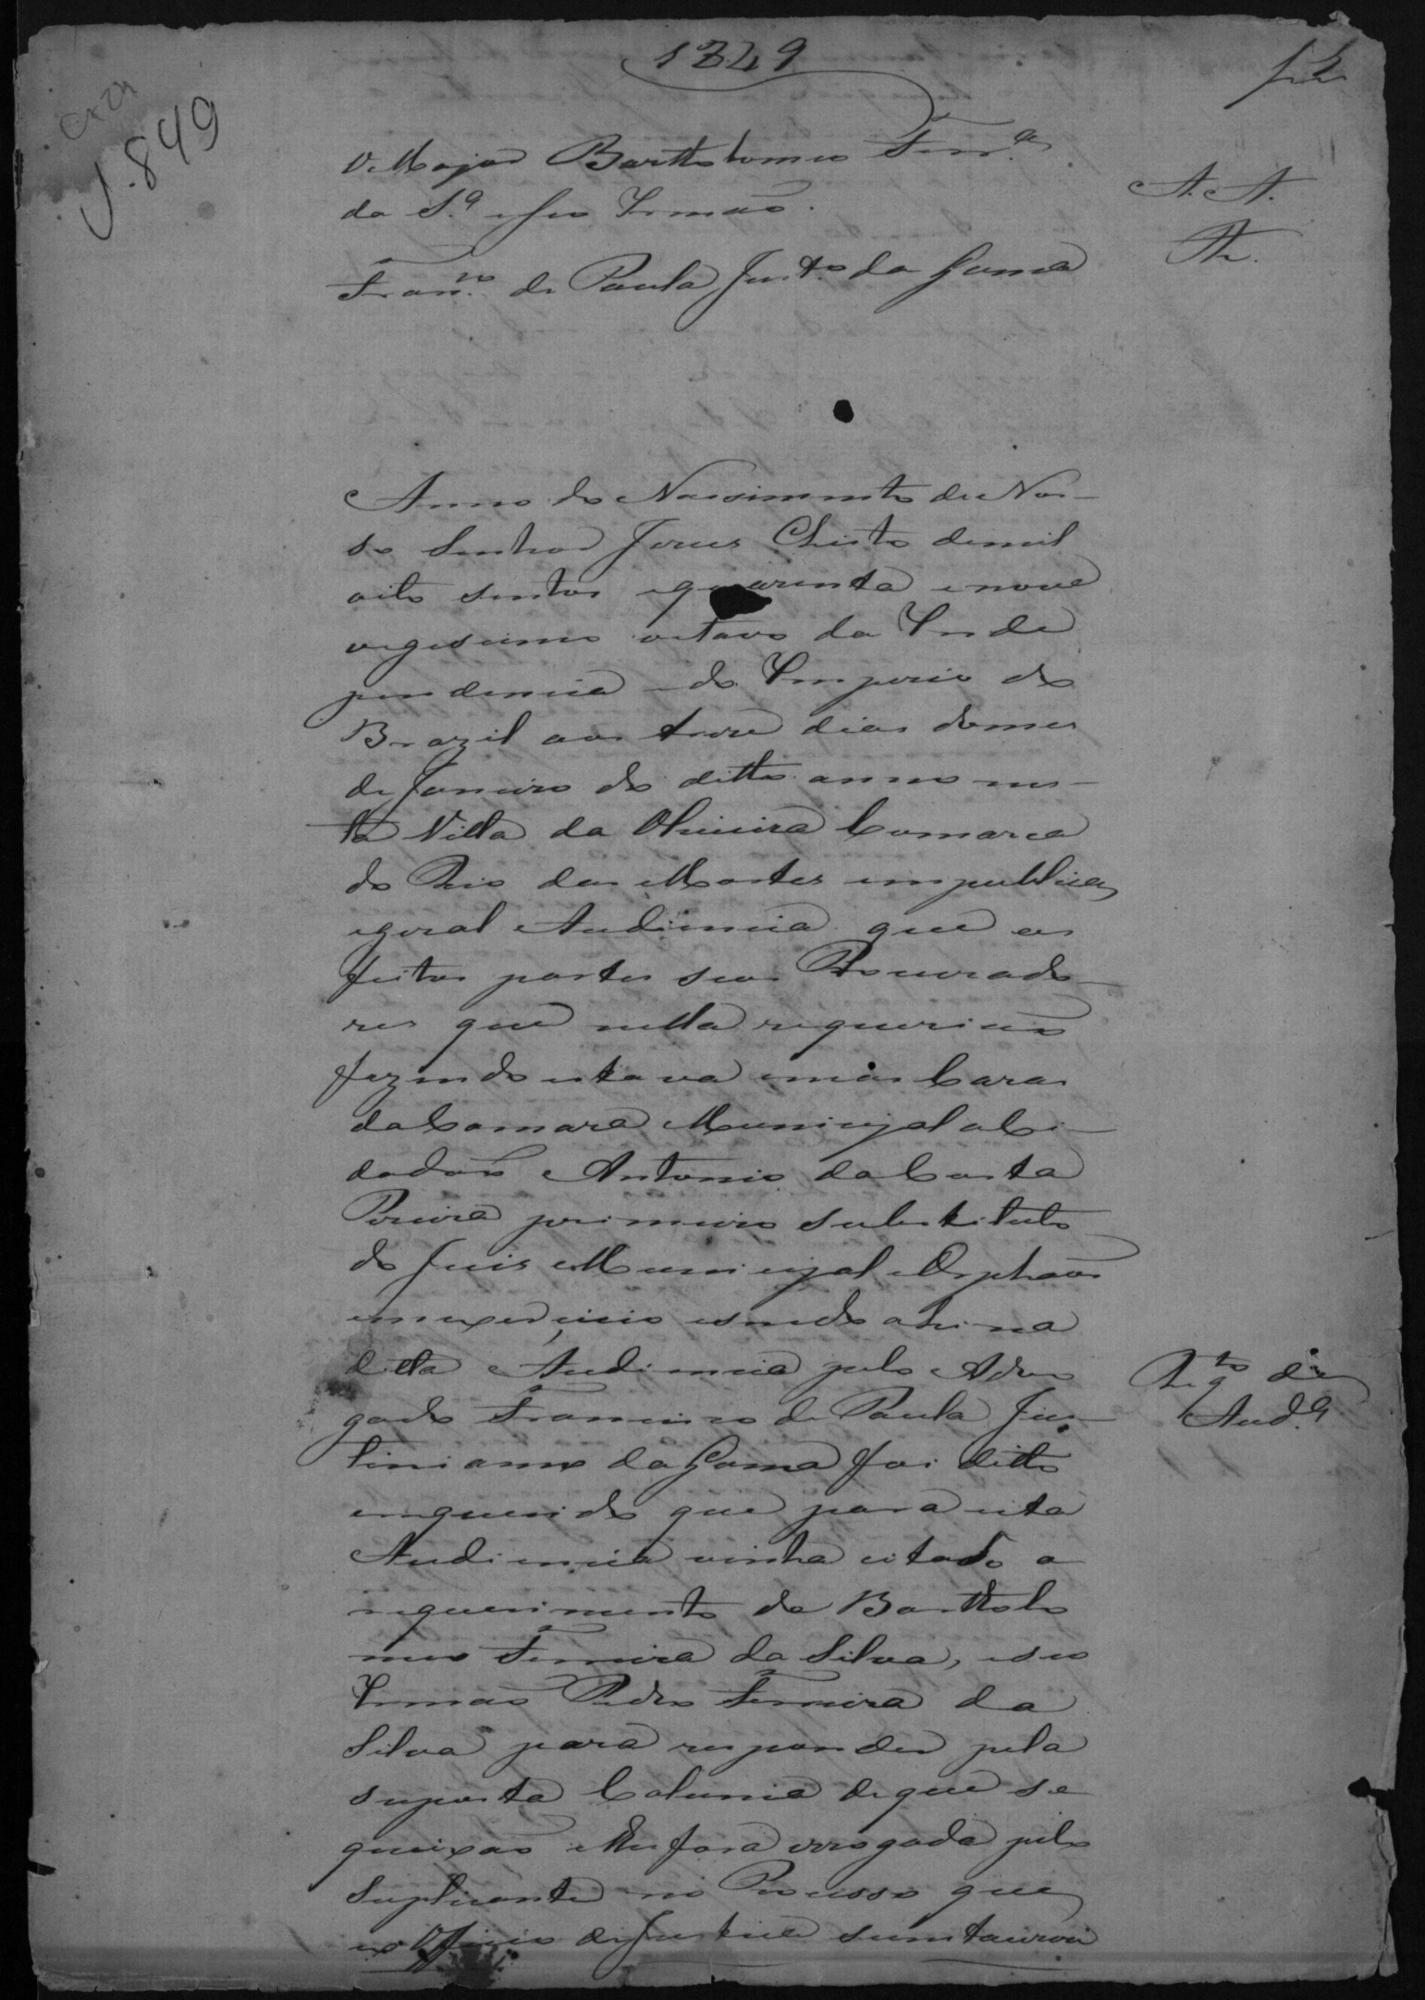 1849
1.849
O Major Bartholomeo Ferr.ª
da S.ª e seo Irmaõ.
A. A.
Fran.co de Paula Just.º da Gama
R.
Anno do Nascimento de Nos-
so Senhor Jesus Christo demil
oito sentos equarenta enove
vigesimo oitavo da Inde
pendencia do Imperio do
Brazil aos treze dias domes
de Janeiro do ditto anno nes-
ta Villa da Oliveira Comarca
do Rio das Mortes empublica
egeral Audiencia que os
feitos partes seos Procurado-
res que nella requeriaõ
fazendo estava em as Caras
da Camara Municipal o Ci-
dadaõ Antonio da Costa
Pereira primeiro substituto
do Juis Municipal e Orphaõs
em exercicio esendo ahi na
ditta Audiencia pelo Advo
gado Francisco de Paula Jus-
tiniano da Gama foi ditto
erequerido que para esta
Audiencia vinha citado a
requerimento de Bartholo
meo Ferreira da Silva, eseo
Irmaõ Pedro Ferreira da
Silva para responder pela
suposta Calunia deque se
queixaõ lhes fora irrogada pelo
Suplicante no Processo que
ex Officio da Justiça
Reg.to de
Aud.ª